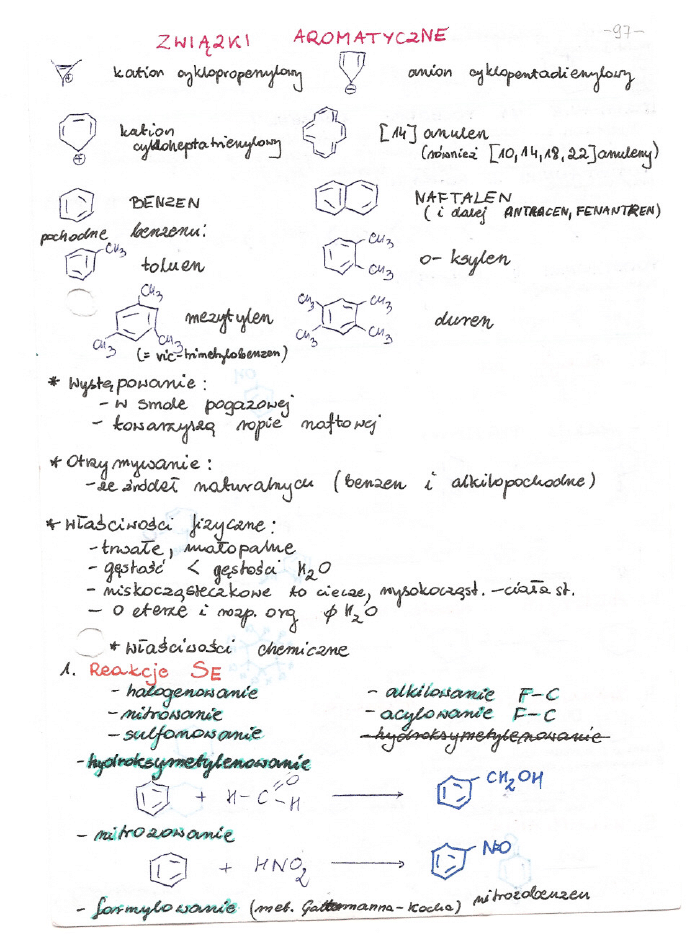 -97-
ZWIĄZKI AROMATYCZNE
kation cyklopropenylowy
anion cyklopentadienylowy
kation cykloheptatrienylowy
[14] anulen
(również [10, 14, 18, 22] anuleny)
BENZEN
NAFTALEN
(i dalej ANTRACEN, FENANTREN)
pochodne benzenu:
CH3
toluen
CH3
CH3
o-ksylen
CH3
CH3
CH3
mezytylen
(= vic-trimetylobenzen)
CH3
CH3
CH3
CH3
duren
* Występowanie:
- w smole pogazowej
- towarzyszą ropie naftowej
* Otrzymywanie:
- ze źródeł naturalnych (benzen i alkilopochodne)
* Właściwości fizyczne:
- trwałe, małopalne
- gęstość < gęstości H2O
- niskocząsteczkowe to ciecze, wysokocząst. - ciała st.
- o eterze i rozp. org ∅ H2O
* Właściwości chemiczne
1. Reakcje SE
- halogenowanie
- nitrowanie
- sulfonowanie
- alkilowanie F-C
- acylowanie F-C
- hydroksymetylenowanie
- hydroksymetylenowanie
+ H-C=O -H → CH2OH
- nitrozowanie
+ HNO2 → N=O
nitrozobenzen
- formylowanie (met. Gattermanna-Kocha)